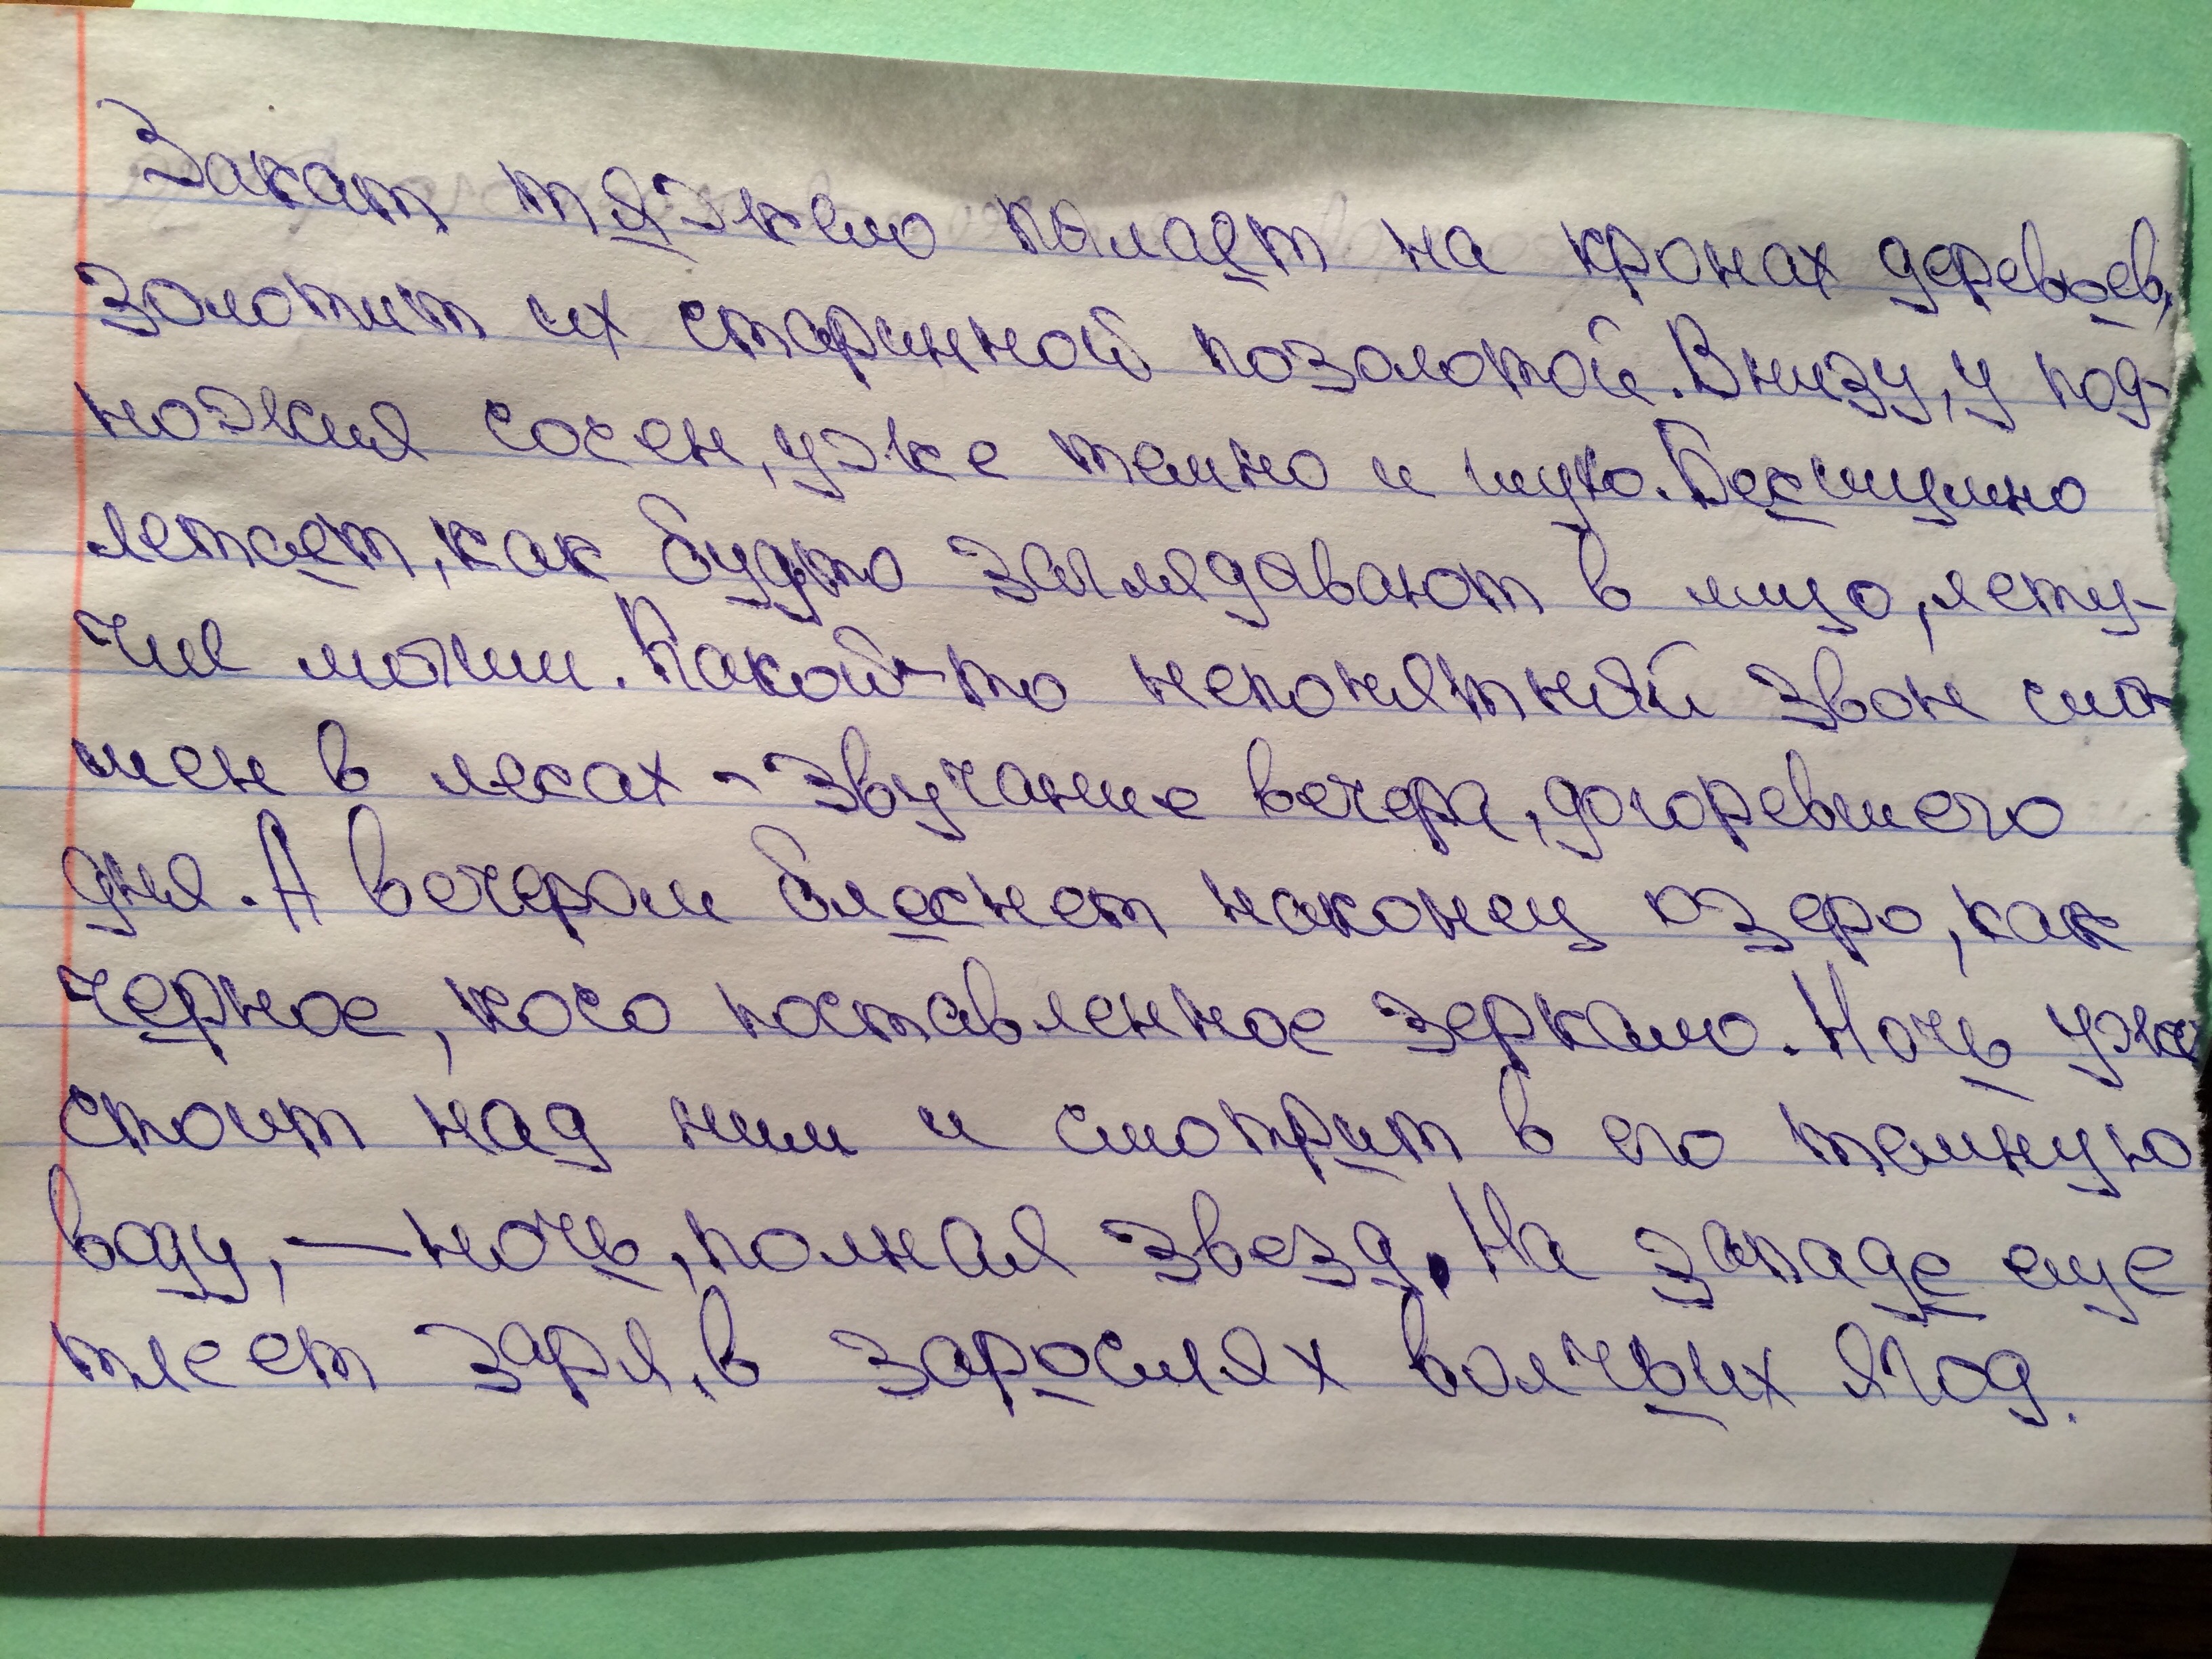 Закат тяжело пылает на кронах деревьев,
золотит их старинной позолотой. Внизу, у под-
ножия сосен, уже темно и глухо. Бесшумно
летает, как будто заглядавают в лицо, лету-
чие мыши. Какой-то непонятный звон слы-
шен в лесах - звучание вечера, догоревшего
дня. А вечером блеснет наконец озеро, как
черное, косо поставленное зеркало. Ночь уже
стоит над ним и смотрит в его темную
воду, — ночь, полная звезд. На западе еще
тлеет заря, в зарослях волчьих ягод.